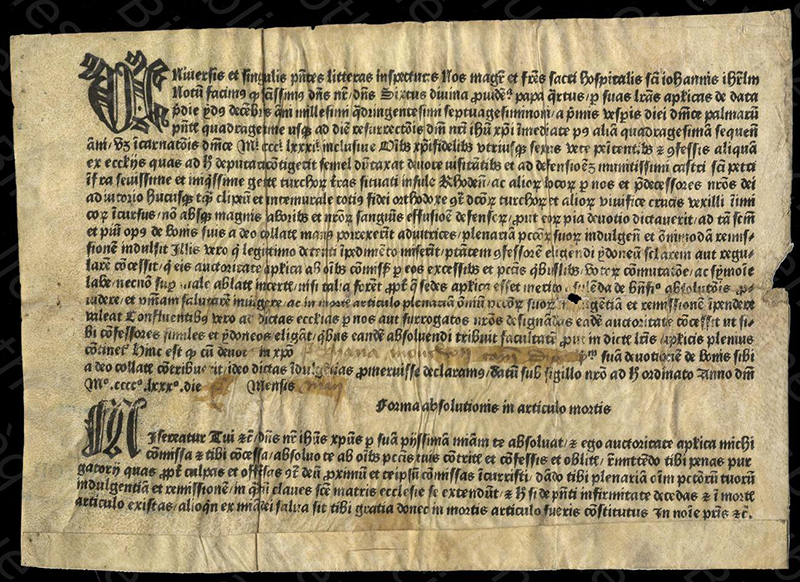 Niuersis et singulis p̄ntes litteras inspecturis Nos magr̄ et fr̄es sacri hospitalis sc̄i iohannis ih̄rlm
Notū facimꝰ sc̄issimꝰ dn̄s nr̄ dn̄s Sixtus diuina ꝓuidēᵃ papa q̄rtus ꝑ suas lr̄as apl̄icas de data
p̄die ydꝰ decēbris millesimi q̄dringentesimi septuagesiminoni a p̄mis vesꝑis diei dn̄ice palmarū
p̄n̄t quadragesime usqꝫ ad diē resurrectōis dn̄i nr̄i ih̄u xp̄i īmediate pꝰ aliā quadragesimā sequen̄
īcarnatōis dn̄ice Mº cccc lxxxi inclusiue Oībꝫ xp̄ifidelibꝫ vtriusqꝫ sexus vere pēitentibꝫ et ꝯfessis aliquā
ex ecc̄ijs quas ad deputari cōtigerit semel dūtaxat deuote visitātibꝫ et ad defensioēꝫ munitissimi castri sc̄i petri
īfra seuissime et iniqssime gētis turchoꝝ tr̄as situati insule Rhoden̄ ac alioꝝ locoꝝ ꝑ nos et p̄decessores nrōs dei
adiutorio hucusqꝫ clipeū et intemurale totis fidei orthodoxe ꝯᵗ dc̄oꝝ turchoꝝ et alioꝝ viuifice crucis vexilli īimi
coꝝ īcursus nō absqꝫ magnis laboribꝫ et nr̄oꝝ sanguīs effusiōe defensoꝝ ꝓut eoꝝ pia deuotio dictauerit ad tā
et piū opꝰ de bonis suis a deo collatis manꝰ porrexerint adiutrices plenariā pctōꝝ suoꝝ indulgen̄ et ōnimodā remis-
sionē indulsit Illis vero legitimo detenti īpedimēto miserīt ptātem ꝯfessorē eligendi ydoneū sclarem aut regu
larē cōcessit q̄ eis auctoritate apl̄ica ab oībꝫ cōmissꝭ ꝑ eos excessibꝫ et pctis ac symoīe
labe necnō male ablatis incertis nisi talia forēt sedes apl̄ica esset merito cōsulēda de absolutōis ꝓ
uidere et pn̄iam salutarē iniūgere ac in mortis articulo plenariā ōniū pctōꝝ suoꝝ indulgētiā et remissionē īpendere
valeat Confluentibꝫ vero ad dictas ecc̄ias ꝑ nos aut surrogatos nrōs designādas eadē auctoritate cōcessit ut si-
bi cōfessores similes et ydoneos eligāt qꝫbus eandē absoluendi tribuit facultatē ꝓut in dictis lr̄is apl̄icis plenius
cōtinet̄ Hinc est cū deuot in xp̄o suā deuotionē de bonis sibi
a deo collatis cōtribuerit ideo dictas īdulgētias ꝓmeruisse declaramꝰ Datū sub sigillo nrō ad ordinato Anno dn̄i
Mº. ccccº. lxxxº. die Mensis maij
Forma absolutionis in articulo mortis
Isereatur Tui ⁊c̄ dn̄s nr̄ ih̄us xp̄us ꝑ suā pijssimā mīam te absoluat ⁊ ego auctoritate apl̄ica michi
cōmissa ⁊ tibi cōcessa absoluo te ab oībꝫ pctīs tuis cōtritis et cōfessis et oblitis remittēdo tibi penas pur
gatorij quas ꝓpt̄ culpas et offēsas ꝯᵗ deū ꝓximū et teipsū cōmissas īcurristi dādo tibi plenariā oīm pctōrū tuorū
indulgentiā et remissionē in claues sc̄te matris ecclesie se extendūt ⁊ si de p̄nti infirmitate decedas ⁊ ī mortis
articulo existas alioqn ex salua sit tibi gratia donec in mortis articulo fueris cōstitutus In noīe pr̄is ⁊c̄.